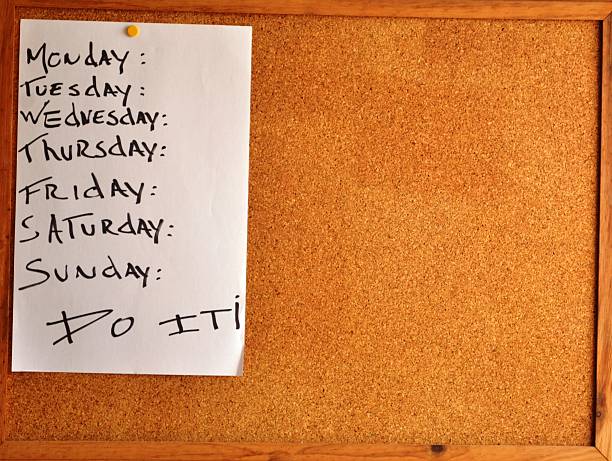 MONDAY:
TUESDAY:
WEDNESDAY:
THURSDAY:
FRIDAY:
SATURDAY:
SUNDAY:
DO IT!